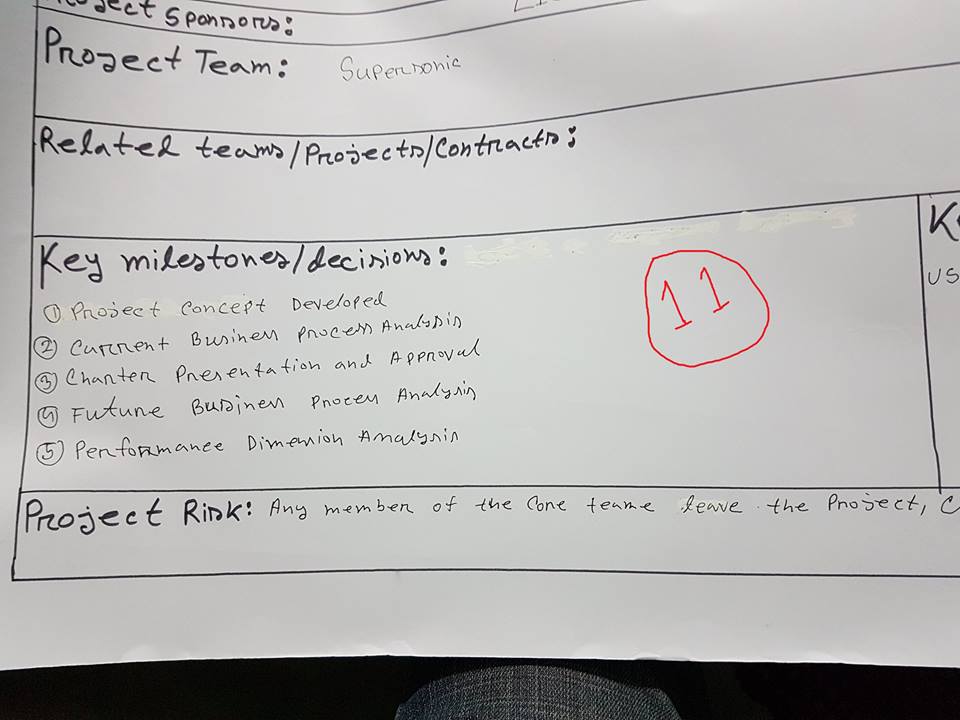 Project Sponsors:
Project Team: Supersonic
Related teams/Projects/Contracts:
Key milestones/decisions:
11
① Project Concept Developed
② Current Business Process Analysis
③ Charter Presentation and Approval
④ Future Business Process Analysis
⑤ Performance Dimension Analysis
US
Project Risk: Any member of the Core teame leave the Project, C